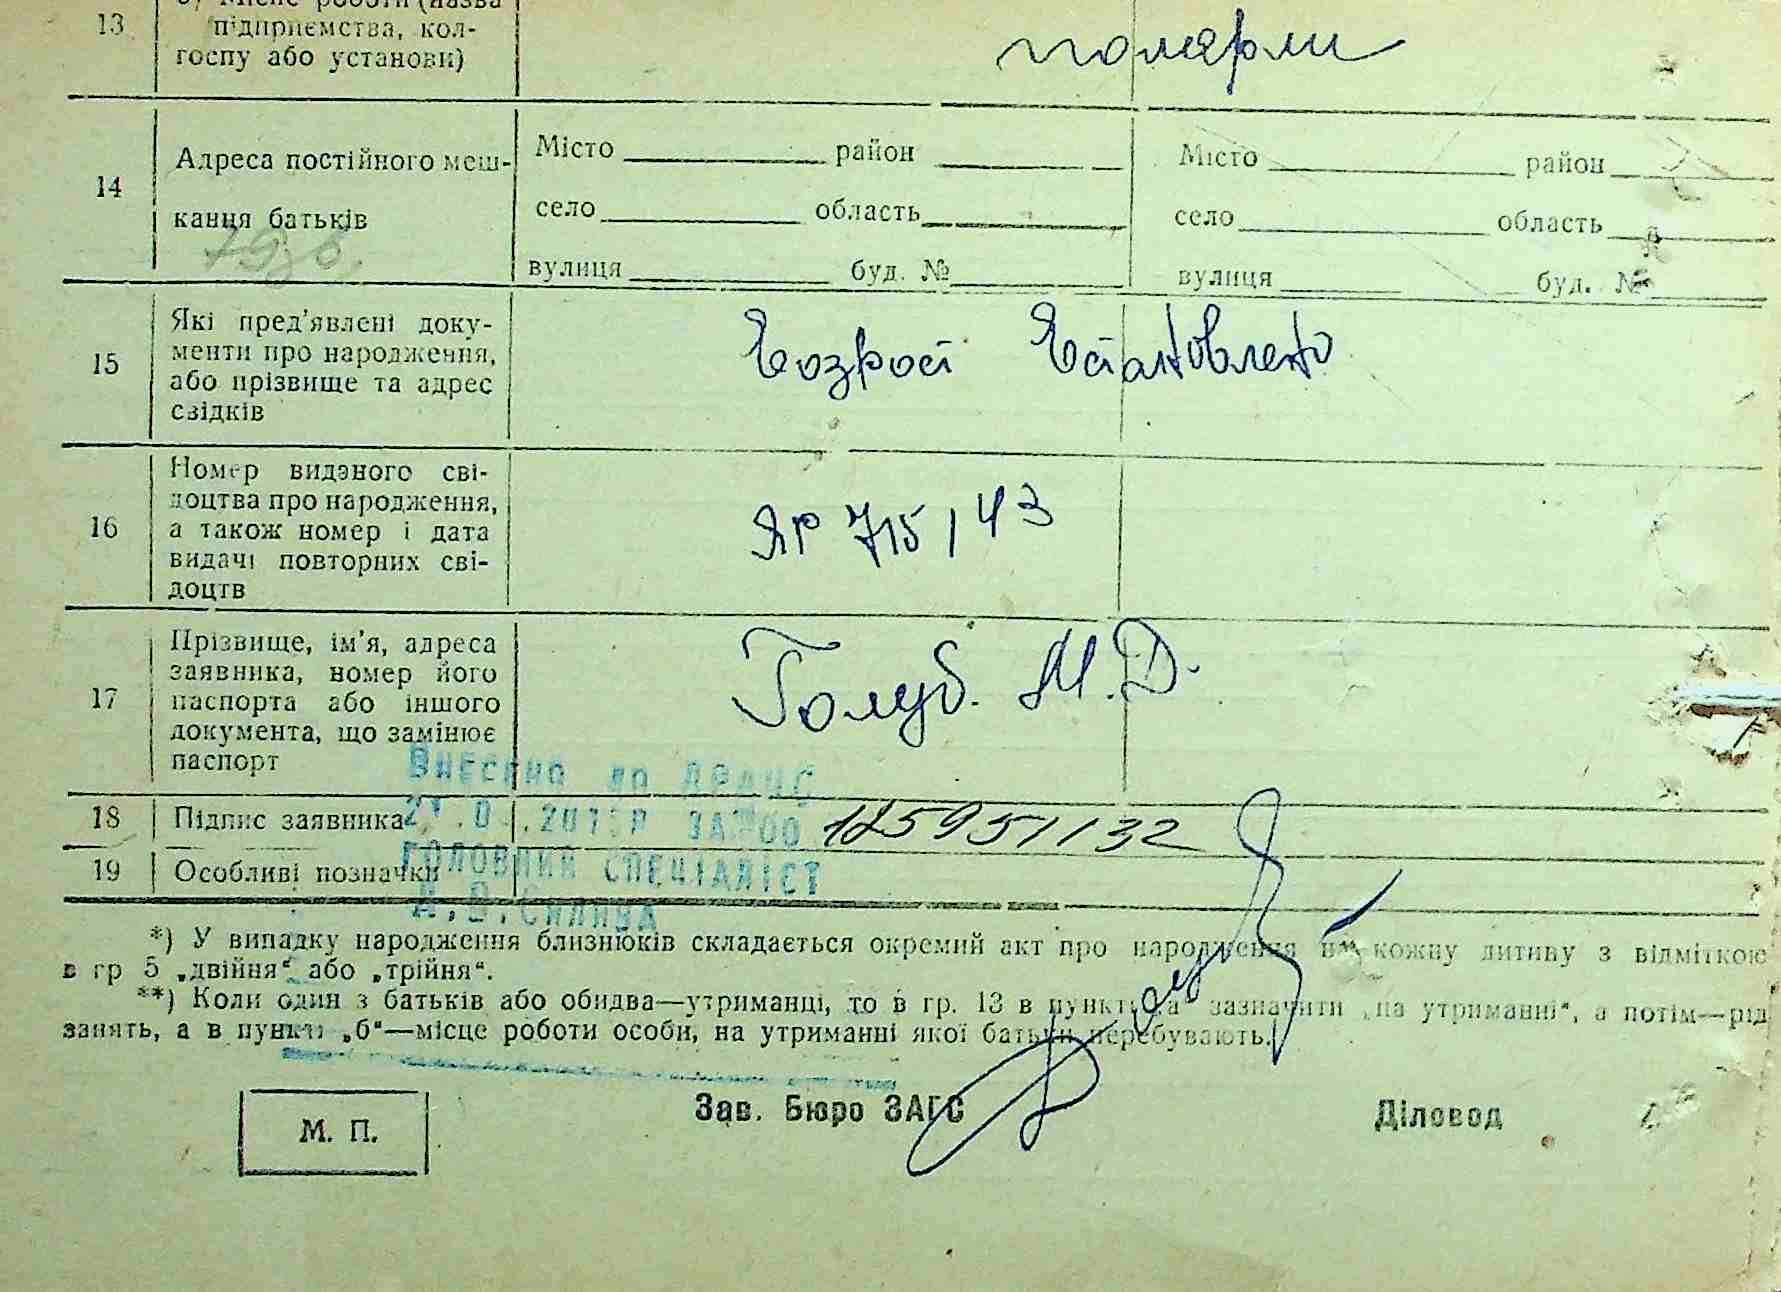 13 б) Місце роботи (назва
підприємства, кол-
госпу або установи)
померли
14 Адреса постійного меш-
кання батьків
Місто район
село область
вулиця буд. №
Місто район
село область
вулиця буд. №
15 Які пред'явлені доку-
менти про народження,
або прізвище та адрес
свідків
16 Номер виданого сві-
доцтва про народження,
а також номер і дата
видачі повторних сві-
доцтв
ЯР 715143
17 Прізвище, ім'я, адреса
заявника, номер його
паспорта або іншого
документа, що замінює
паспорт
Голуб. М.Д.
Внесено до ДРАЦС
18 Підпис заявника
ЗА №00 125951132
Головний спеціаліст
19 Особливі позначки
*) У випадку народження близнюків складається окремий акт про народження на кожну дитину з відміткою
в гр 5 „двійня“ або „трійня“.
**) Коли один з батьків або обидва—утриманці, то в гр. 13 в пункті „а“ зазначити „на утриманні“, а потім—рід
занять, а в пункті „б“—місце роботи особи, на утриманні якої батьки перебувають.
М. П.
Зав. Бюро ЗАГС
Діловод